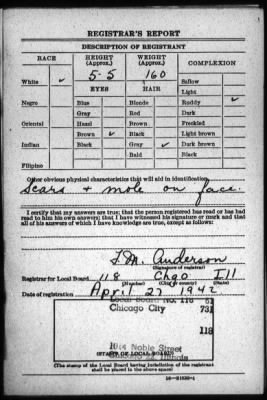 REGISTRAR'S REPORT
DESCRIPTION OF REGISTRANT
RACE
HEIGHT (Approx.)
WEIGHT (Approx.)
COMPLEXION
5-5
160
White ✓
Sallow
Light
EYES
HAIR
Ruddy ✓
Negro
Blue
Blonde
Dark
Gray
Red
Freckled
Oriental
Hazel
Brown
Light brown
Brown ✓
Black
Dark brown
Indian
Black
Gray ✓
Black
Bald
Filipino
Other obvious physical characteristics that will aid in identification
Scars + mole on face.
I certify that my answers are true; that the person registered has read or has had
read to him his own answers; that I have witnessed his signature or mark and that
all of his answers of which I have knowledge are true, except as follows:
Anderson
(Signature of registrar)
Registrar for Local Board 118 Chgo Ill
(Number) (City or county) (State)
Date of registration April 27 1942
Local Board No. 118 61
Chicago City 731
118
Noble Street
Illinois
(STAMP OF LOCAL BOARD)
(The stamp of the Local Board having jurisdiction of the registrant
shall be placed in the above space)